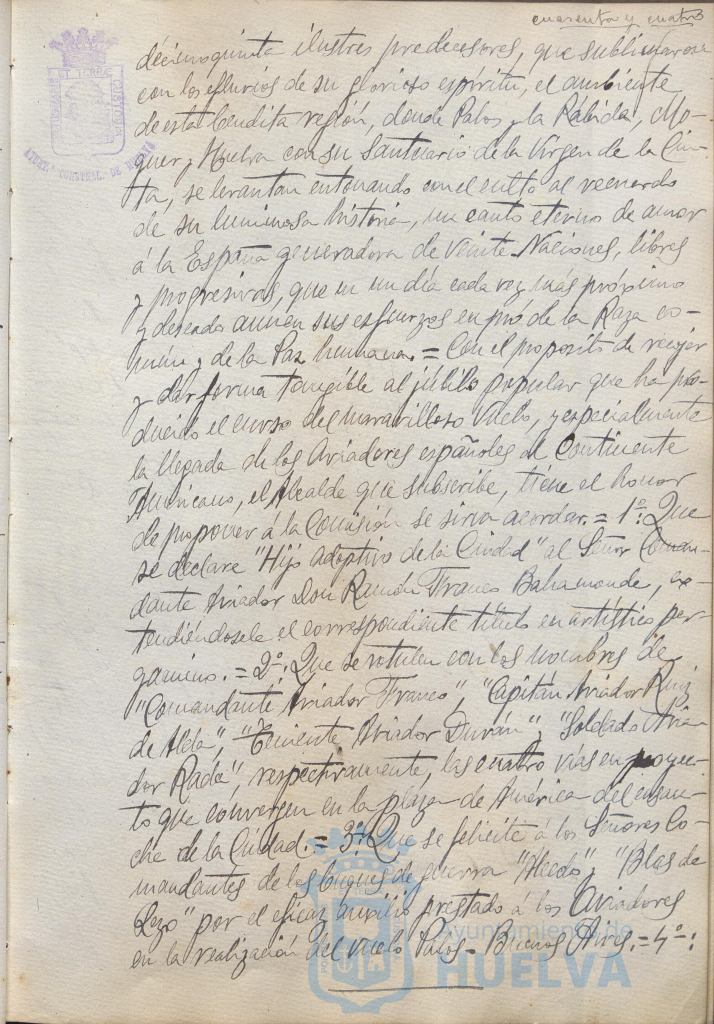 cuarenta y cuatro
décimoquinta ilustres predecesores, que sublimaron
con los efluvios de su glorioso espíritu, el ambiente
de esta bendita región, donde Palos y la Rábida, Mo-
guer y Huelva con su Santuario de la Virgen de la Cin-
ta, se levantan entonando con el culto al recuerdo
de su luminosa historia, un canto eterno de amor
á la España generadora de veinte Naciones, libres
y progresivas, que en un día cada vez más próximo
y deseado aunen sus esfuerzos en pró de la Raza co-
mún y de la Paz humana. = Con el proposito de recojer
y dar forma tangible al júbilo popular que ha pro-
ducido el curso del maravilloso vuelo, y especialmente
la llegada de los Aviadores españoles al Continente
Americano, el Alcalde que subscribe, tiene el honor
de proponer á la Comisión se sirva acordar. = 1º: Que
se declare "Hijo adoptivo de la Ciudad" al Señor Coman-
dante Aviador Don Ramón Franco Bahamonde, ex-
tendiéndosele el correspondiente título en artístico per-
gamino. = 2º: Que se rotulen con los nombres de
"Comandante Aviador Franco", "Capitán Aviador Ruiz
de Alda", "Teniente Aviador Durán", "Soldado Avia-
dor Rada", respectivamente, las cuatro vías en proyec-
to que convergen en la plaza de América del ensan-
che de la Ciudad. = 3º: Que se felicite á los Señores Co-
mandantes de los buques de guerra "Alsedo" y "Blas de
Lezo" por el eficaz auxilio prestado á los Aviadores
en la realización del vuelo Palos-Buenos Aires. = 4º:
Ayuntamiento de
HUELVA